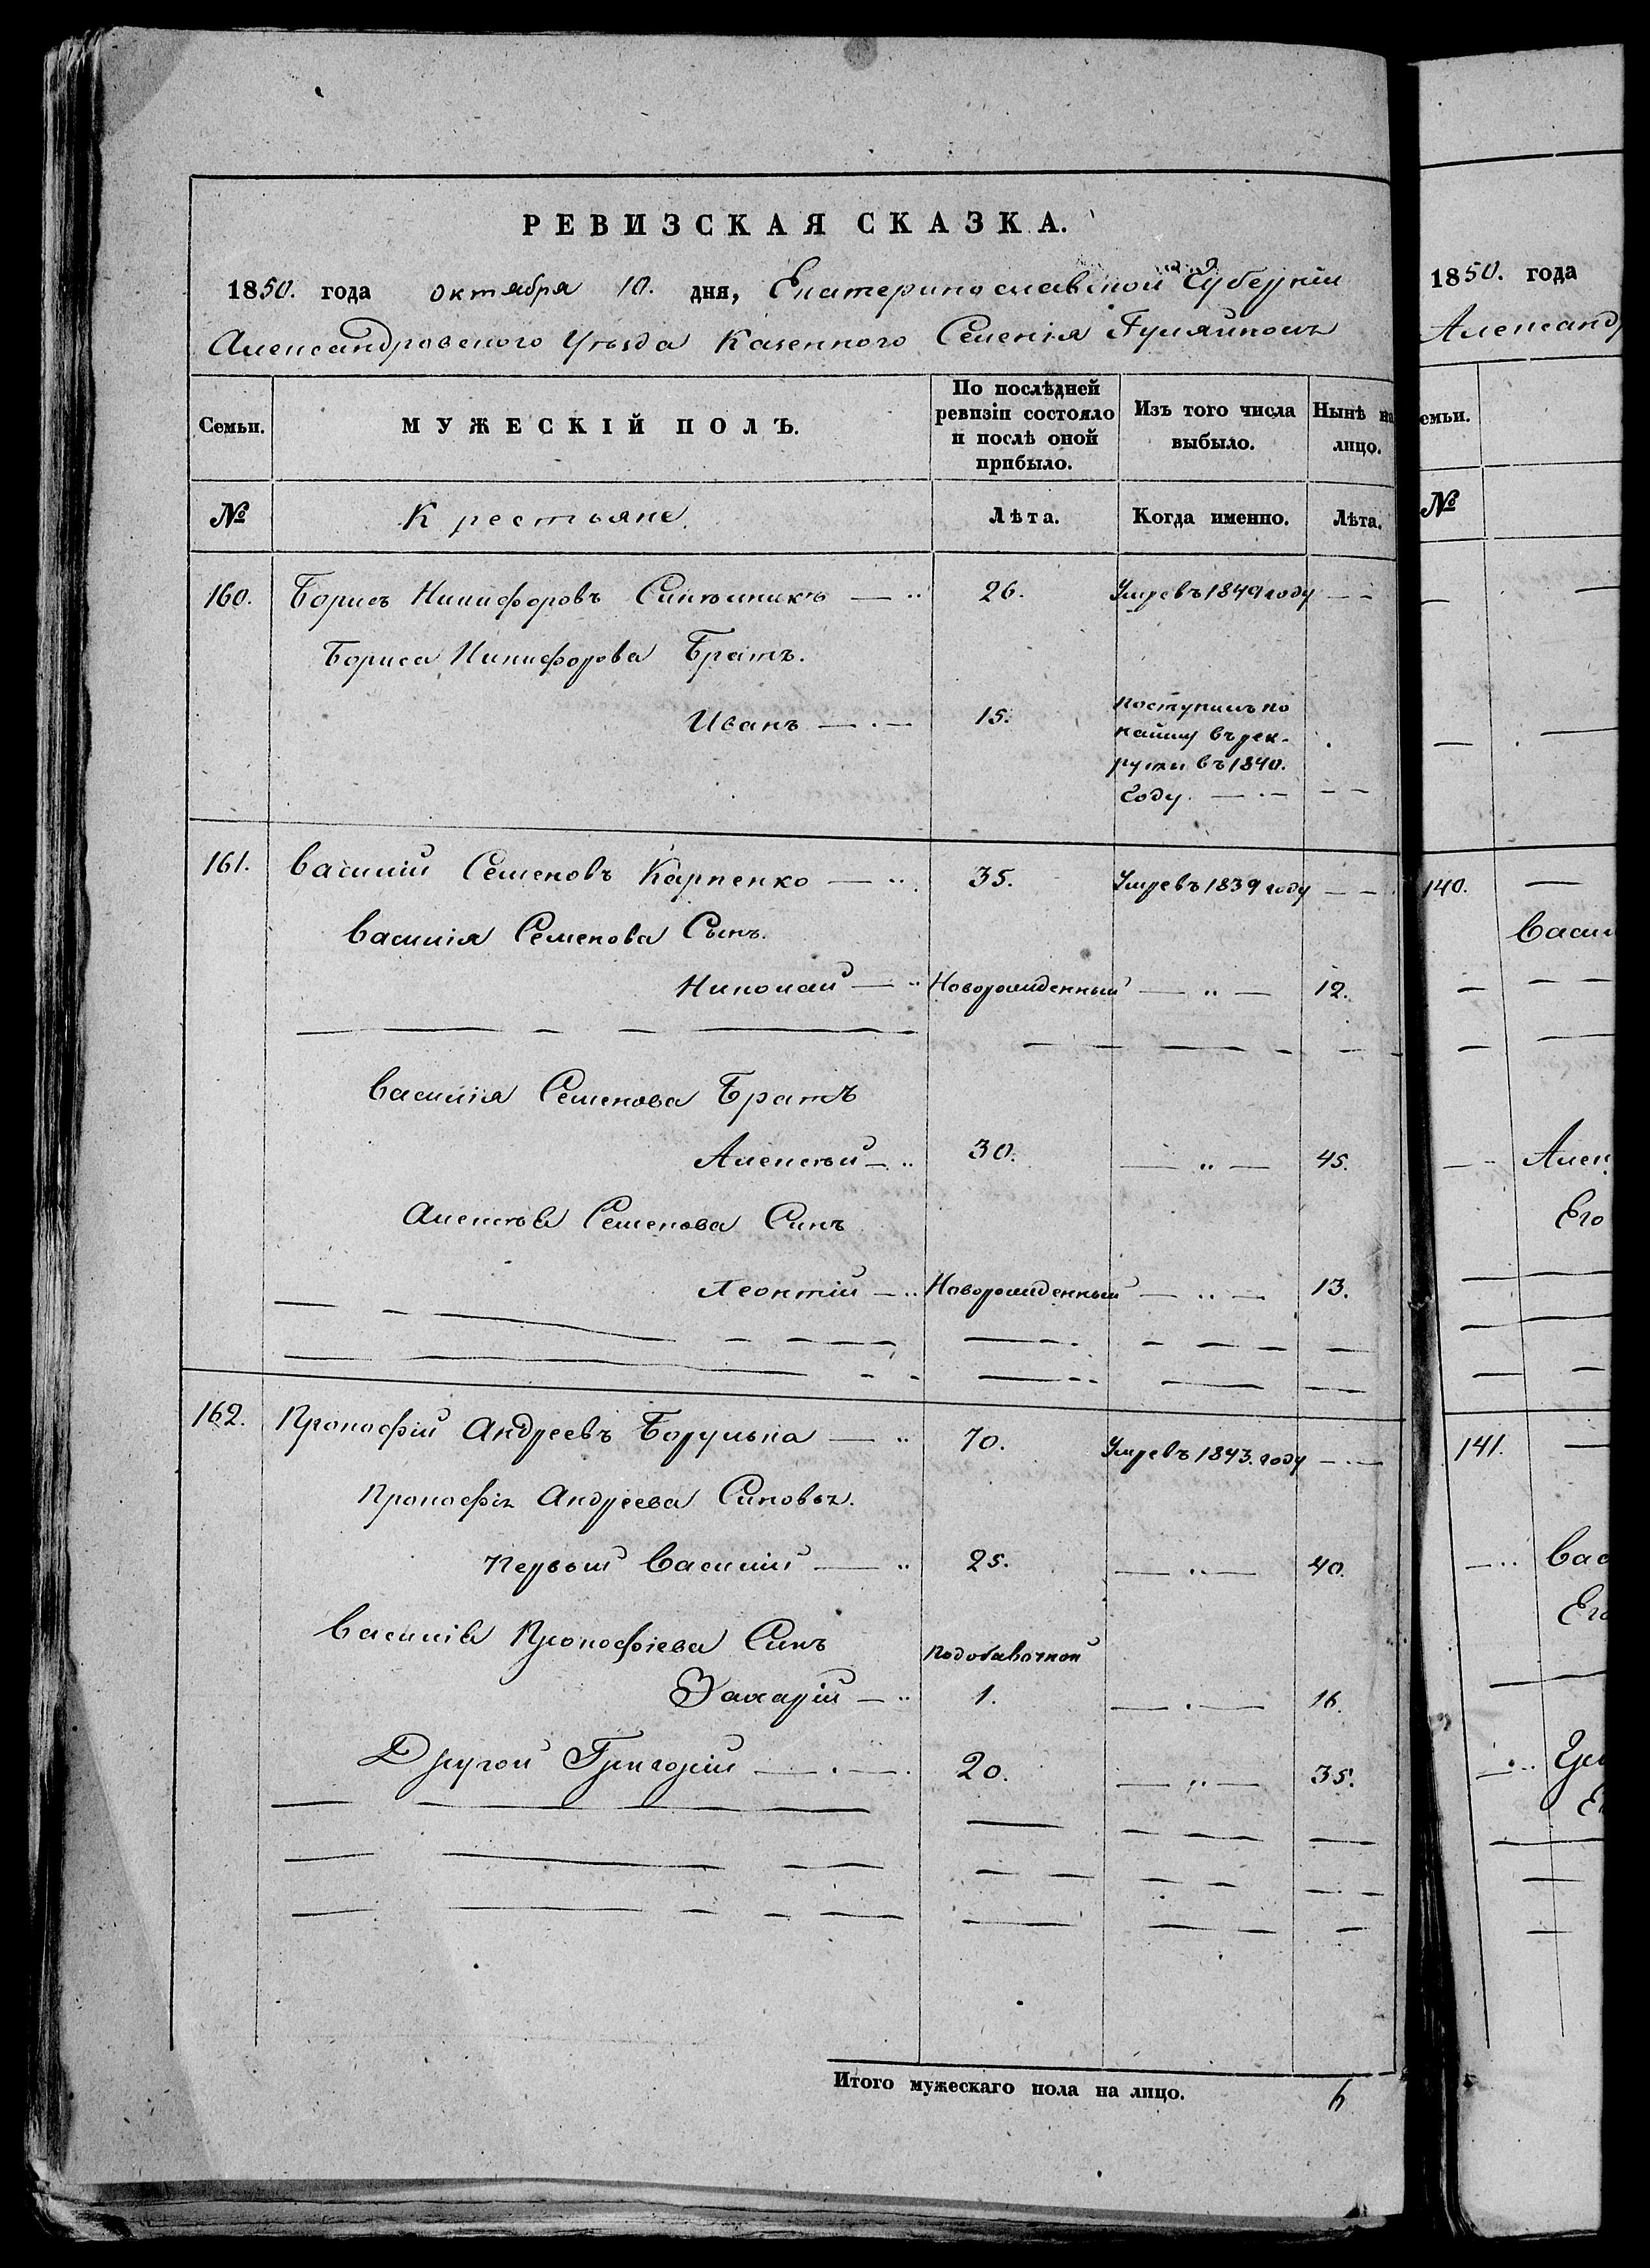 РЕВИЗСКАЯ СКАЗКА.
1850. года октября 10. дня, Екатеринославской Губерніи
Александровского Уѣзда Казенного Селенія Гуляйполь
Семьи. МУЖЕСКІЙ ПОЛЪ. По послѣдней ревизіи состояло и послѣ оной прибыло. Изъ того числа выбыло. Нынѣ на лицо.
№ Крестьяне. Лѣта. Когда именно. Лѣта.
160. Борисъ Никифоровъ 26. Умре въ 1849 году
Бориса Никифорова Братъ.
Иванъ 15. поступилъ по
найму въ рек-
руты въ 1840.
Году.
161. Василій Семеновъ Карпенко 35. Умре въ 1839 году
Василія Семенова Сынъ.
Николай Новорожденный 12.
Василія Семенова Братъ
Алексѣй 30. 45.
Алексѣя Семенова Синъ
Леонтій Новорожденный 13.
162. Прокофій Андреевъ Борулька 70. Умре въ 1843. году
Прокофія Андреева Синовья.
Первый Василій 25. 40.
Василія Прокофіева Синъ
подобавочной
Захарій 1. 16.
Другой Григорій 20. 35.
Итого мужескаго пола на лицо. 6
1850. года
Александр
емьи.
№
140.
Васил
Алек
Его
141.
Вас
Его